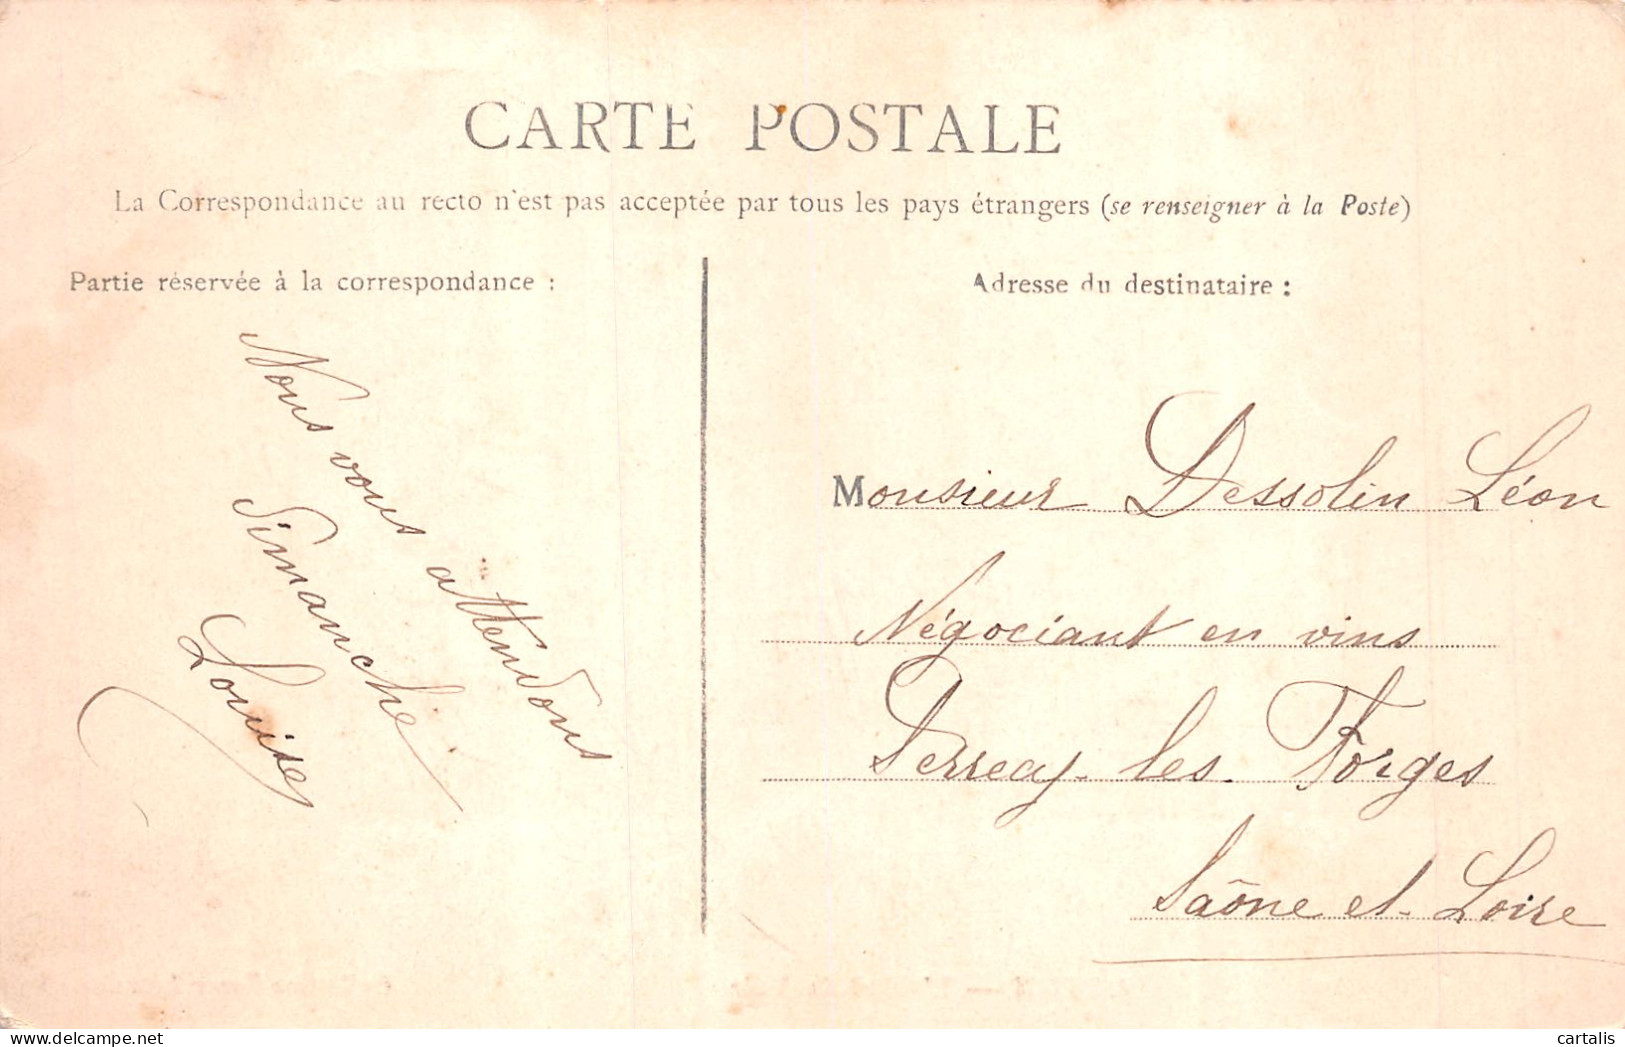 CARTE POSTALE
La Correspondance au recto n'est pas acceptée par tous les pays étrangers (se renseigner à la Poste)
Partie réservée à la correspondance :
Nous vous attendons
Dimanche
Louise
Adresse du destinataire :
Monsieur Dessolin Léon
Négociant en vins
Perrecy-les-Forges
Saône et-Loire
delcampe.net
cartalis